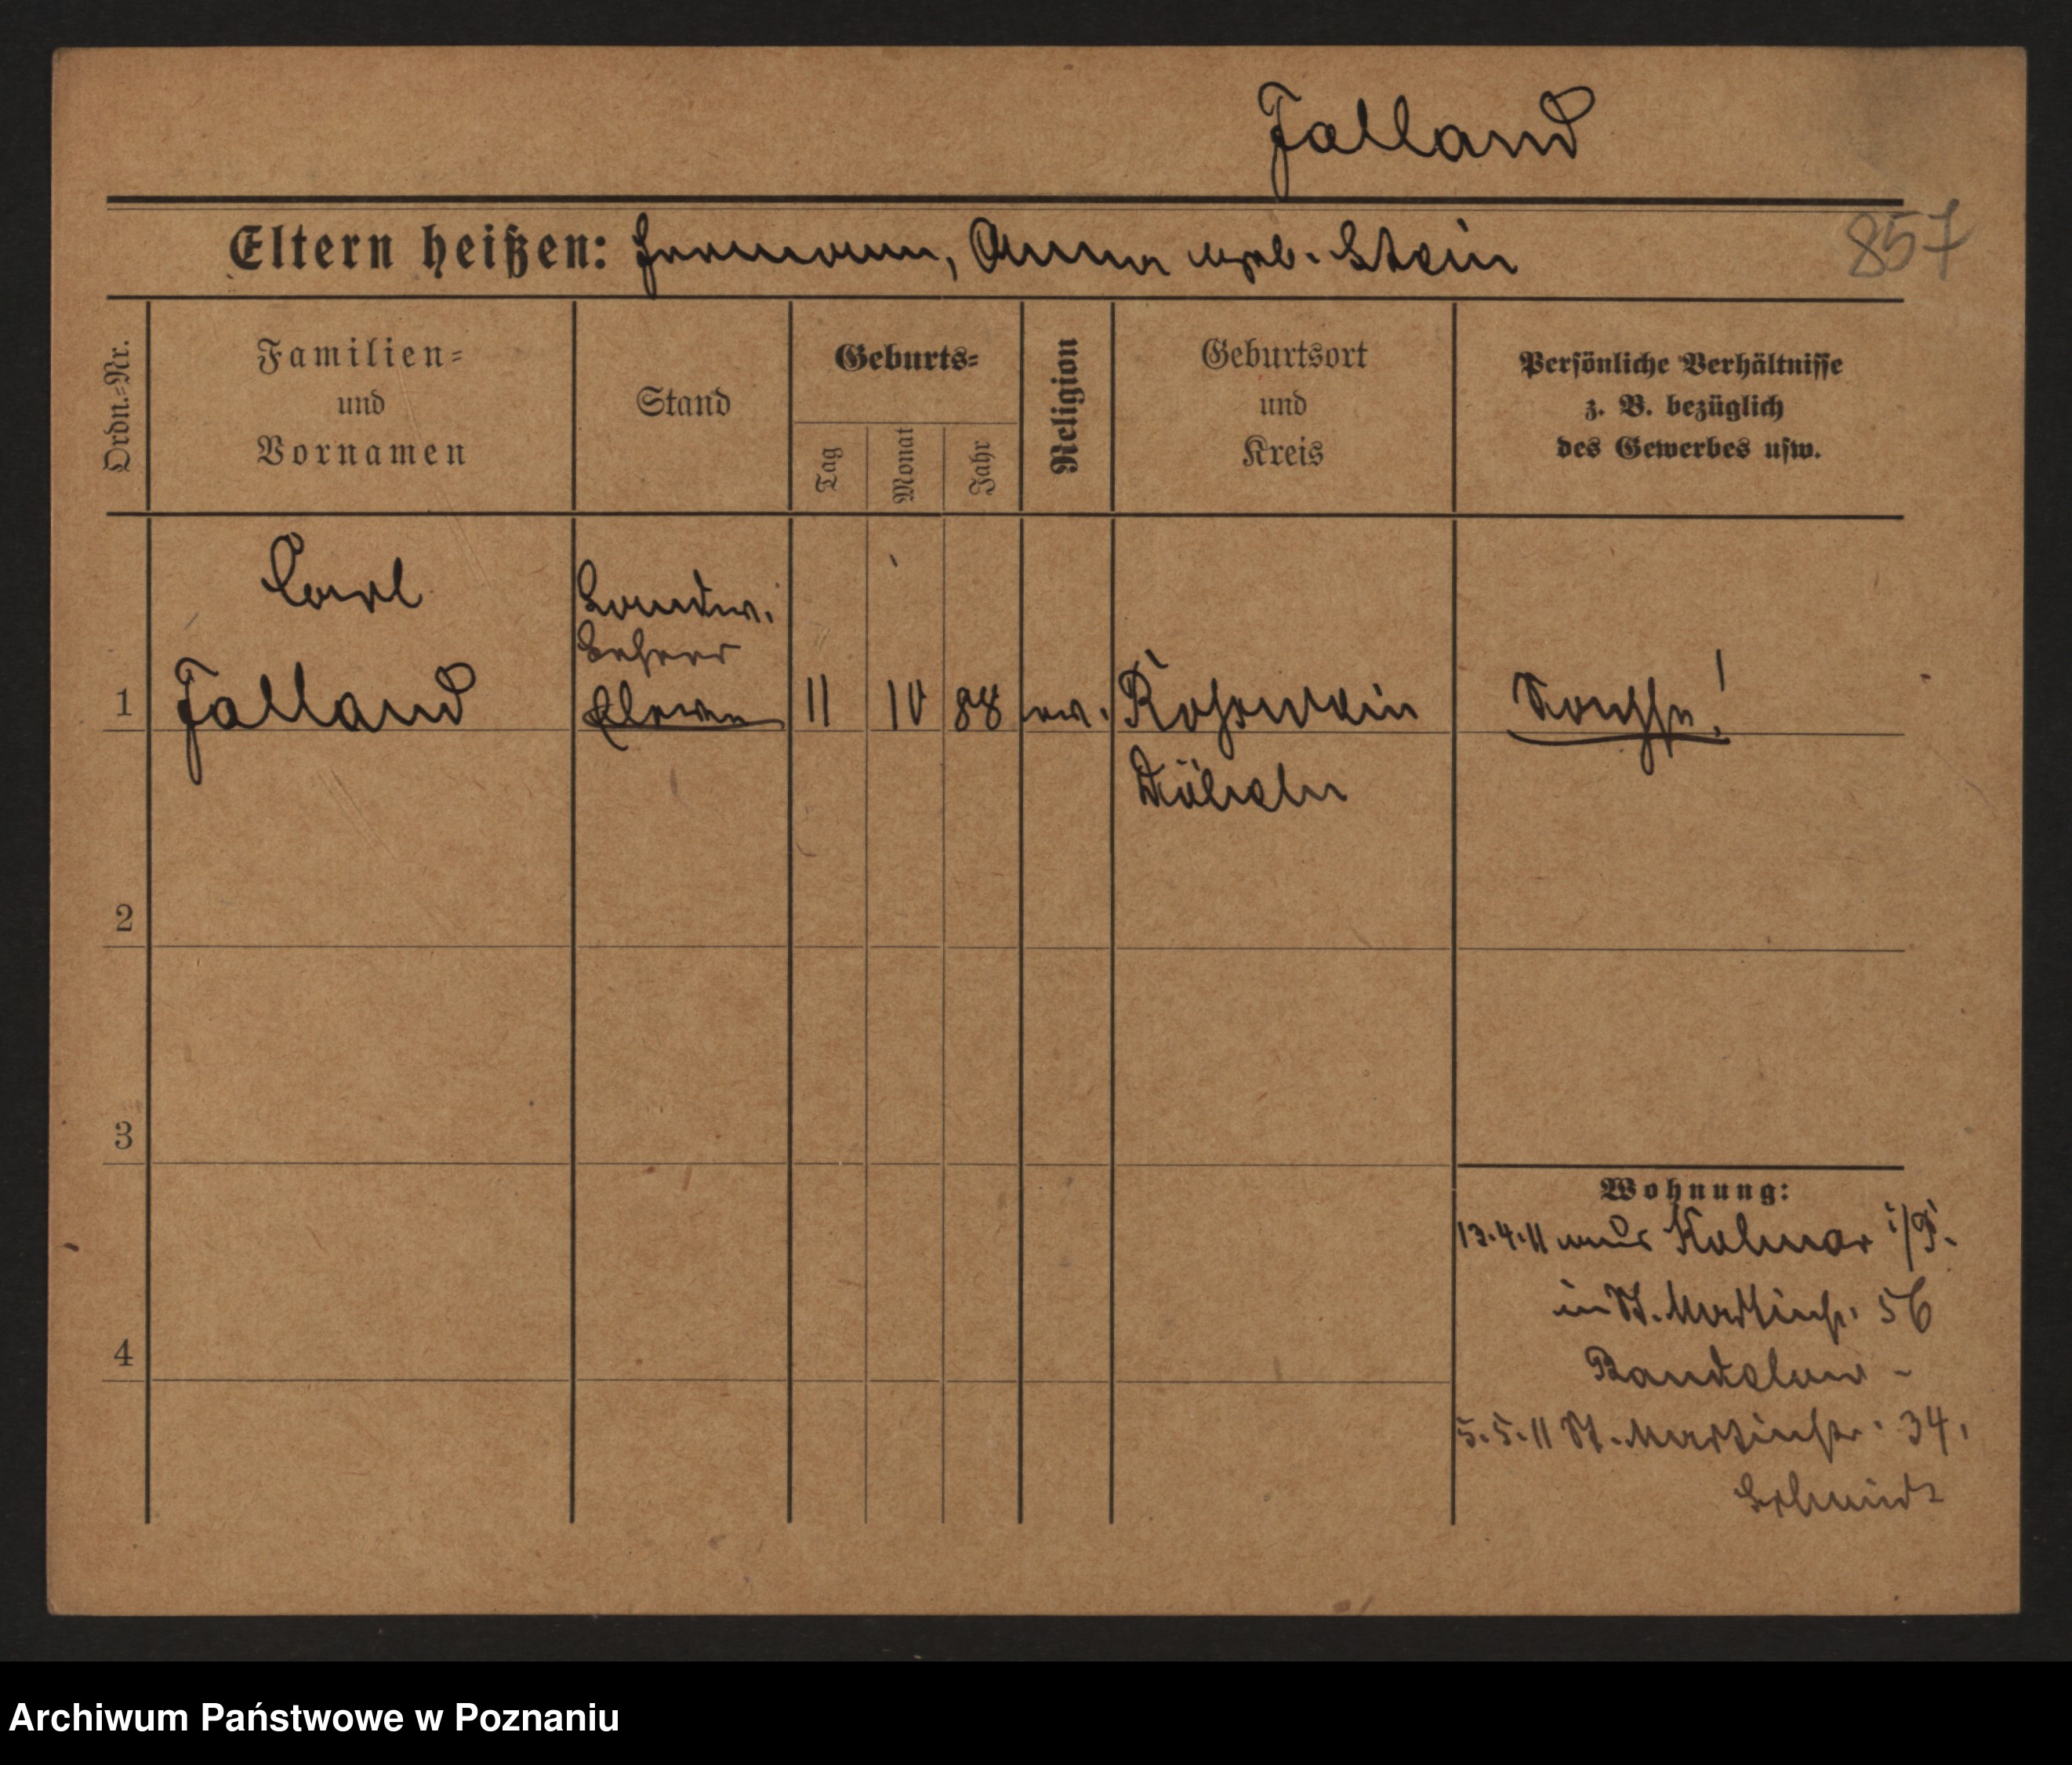 Falland
Eltern heißen: Hermann, Anna geb. Stein
857
Ordn.-Nr.
Familien-
und
Vornamen
Stand
Geburts-
Tag
Monat
Jahr
Religion
Geburtsort
und
Kreis
Persönliche Verhältnisse
z. B. bezüglich
des Gewerbes usw.
Carl
Landw.
Lehrer
1 Falland 11 10 88 ev. Rosswein Sachse!
Döbeln
2
3
4
Wohnung:
13.4.11 aus Kolmar i/P.
in St. Martinstr. 56
Bandelow -
5.5.11 St. Martinstr. 34,
Schmidt
Archiwum Państwowe w Poznaniu